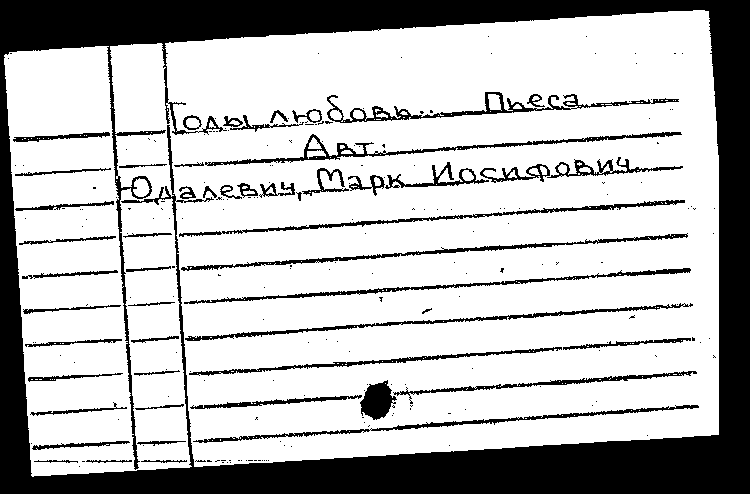 Годы, любовь... Пьеса
Авт.:
Юдалевич, Марк Иосифович